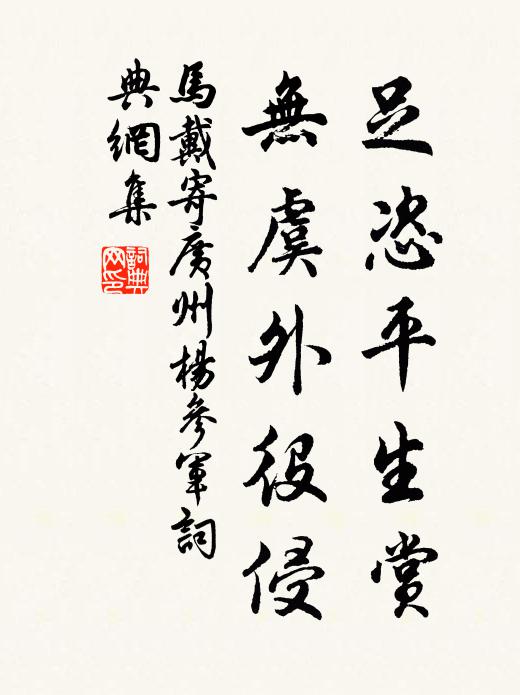 足恣平生賞
無虞外役侵
馬戴寄廣州楊參軍詞
典網集
詞典
网印